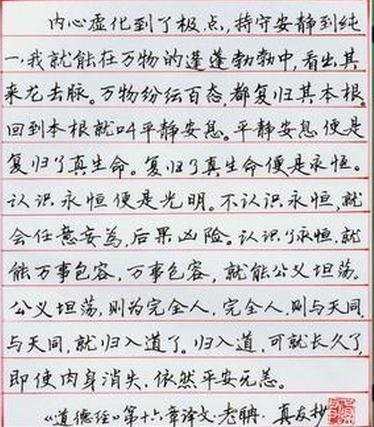 内心虚化到了极点，持守安静到纯
一，我就能在万物的蓬蓬勃勃中，看出其
来龙去脉。万物纷纭百态，都复归其本根。
回到本根就叫平静安息。平静安息便是
复归了真生命。复归了真生命便是永恒。
认识永恒便是光明。不认识永恒，就
会任意妄為，后果凶险。认识了永恒，就
能万事包容，万事包容，就能公义坦荡。
公义坦荡，则为完全人，完全人，则与天同，
与天同，就归入道了。归入道，可就长久了，
即使肉身消失，依然平安无恙。
《道德经》第十六章译文·老聃 真友抄